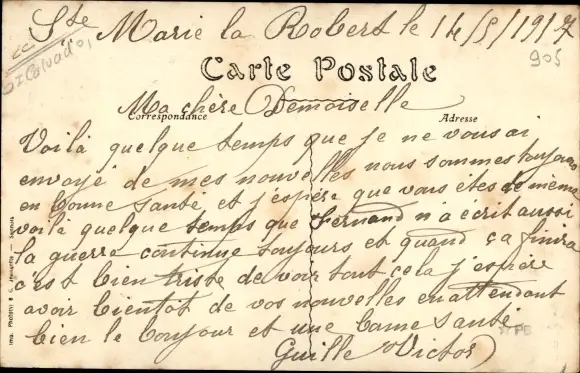 Ste Marie la Robert le 14/5/1917
Calvados
905
Carte Postale
Ma chère Demoiselle
Correspondance
Adresse
Voilà quelque temps que je ne vous ai
envoyé de mes nouvelles nous sommes toujours
en bonne santé et j'espère que vous êtes de même
voilà quelque temps que Fernand n'a écrit aussi
la guerre continue toujours et quand ça finira
c'est bien triste de voir tout cela j'espère
avoir bientot de vos nouvelles en attendant
bien le bonjour et une bonne santé
Guille Victor